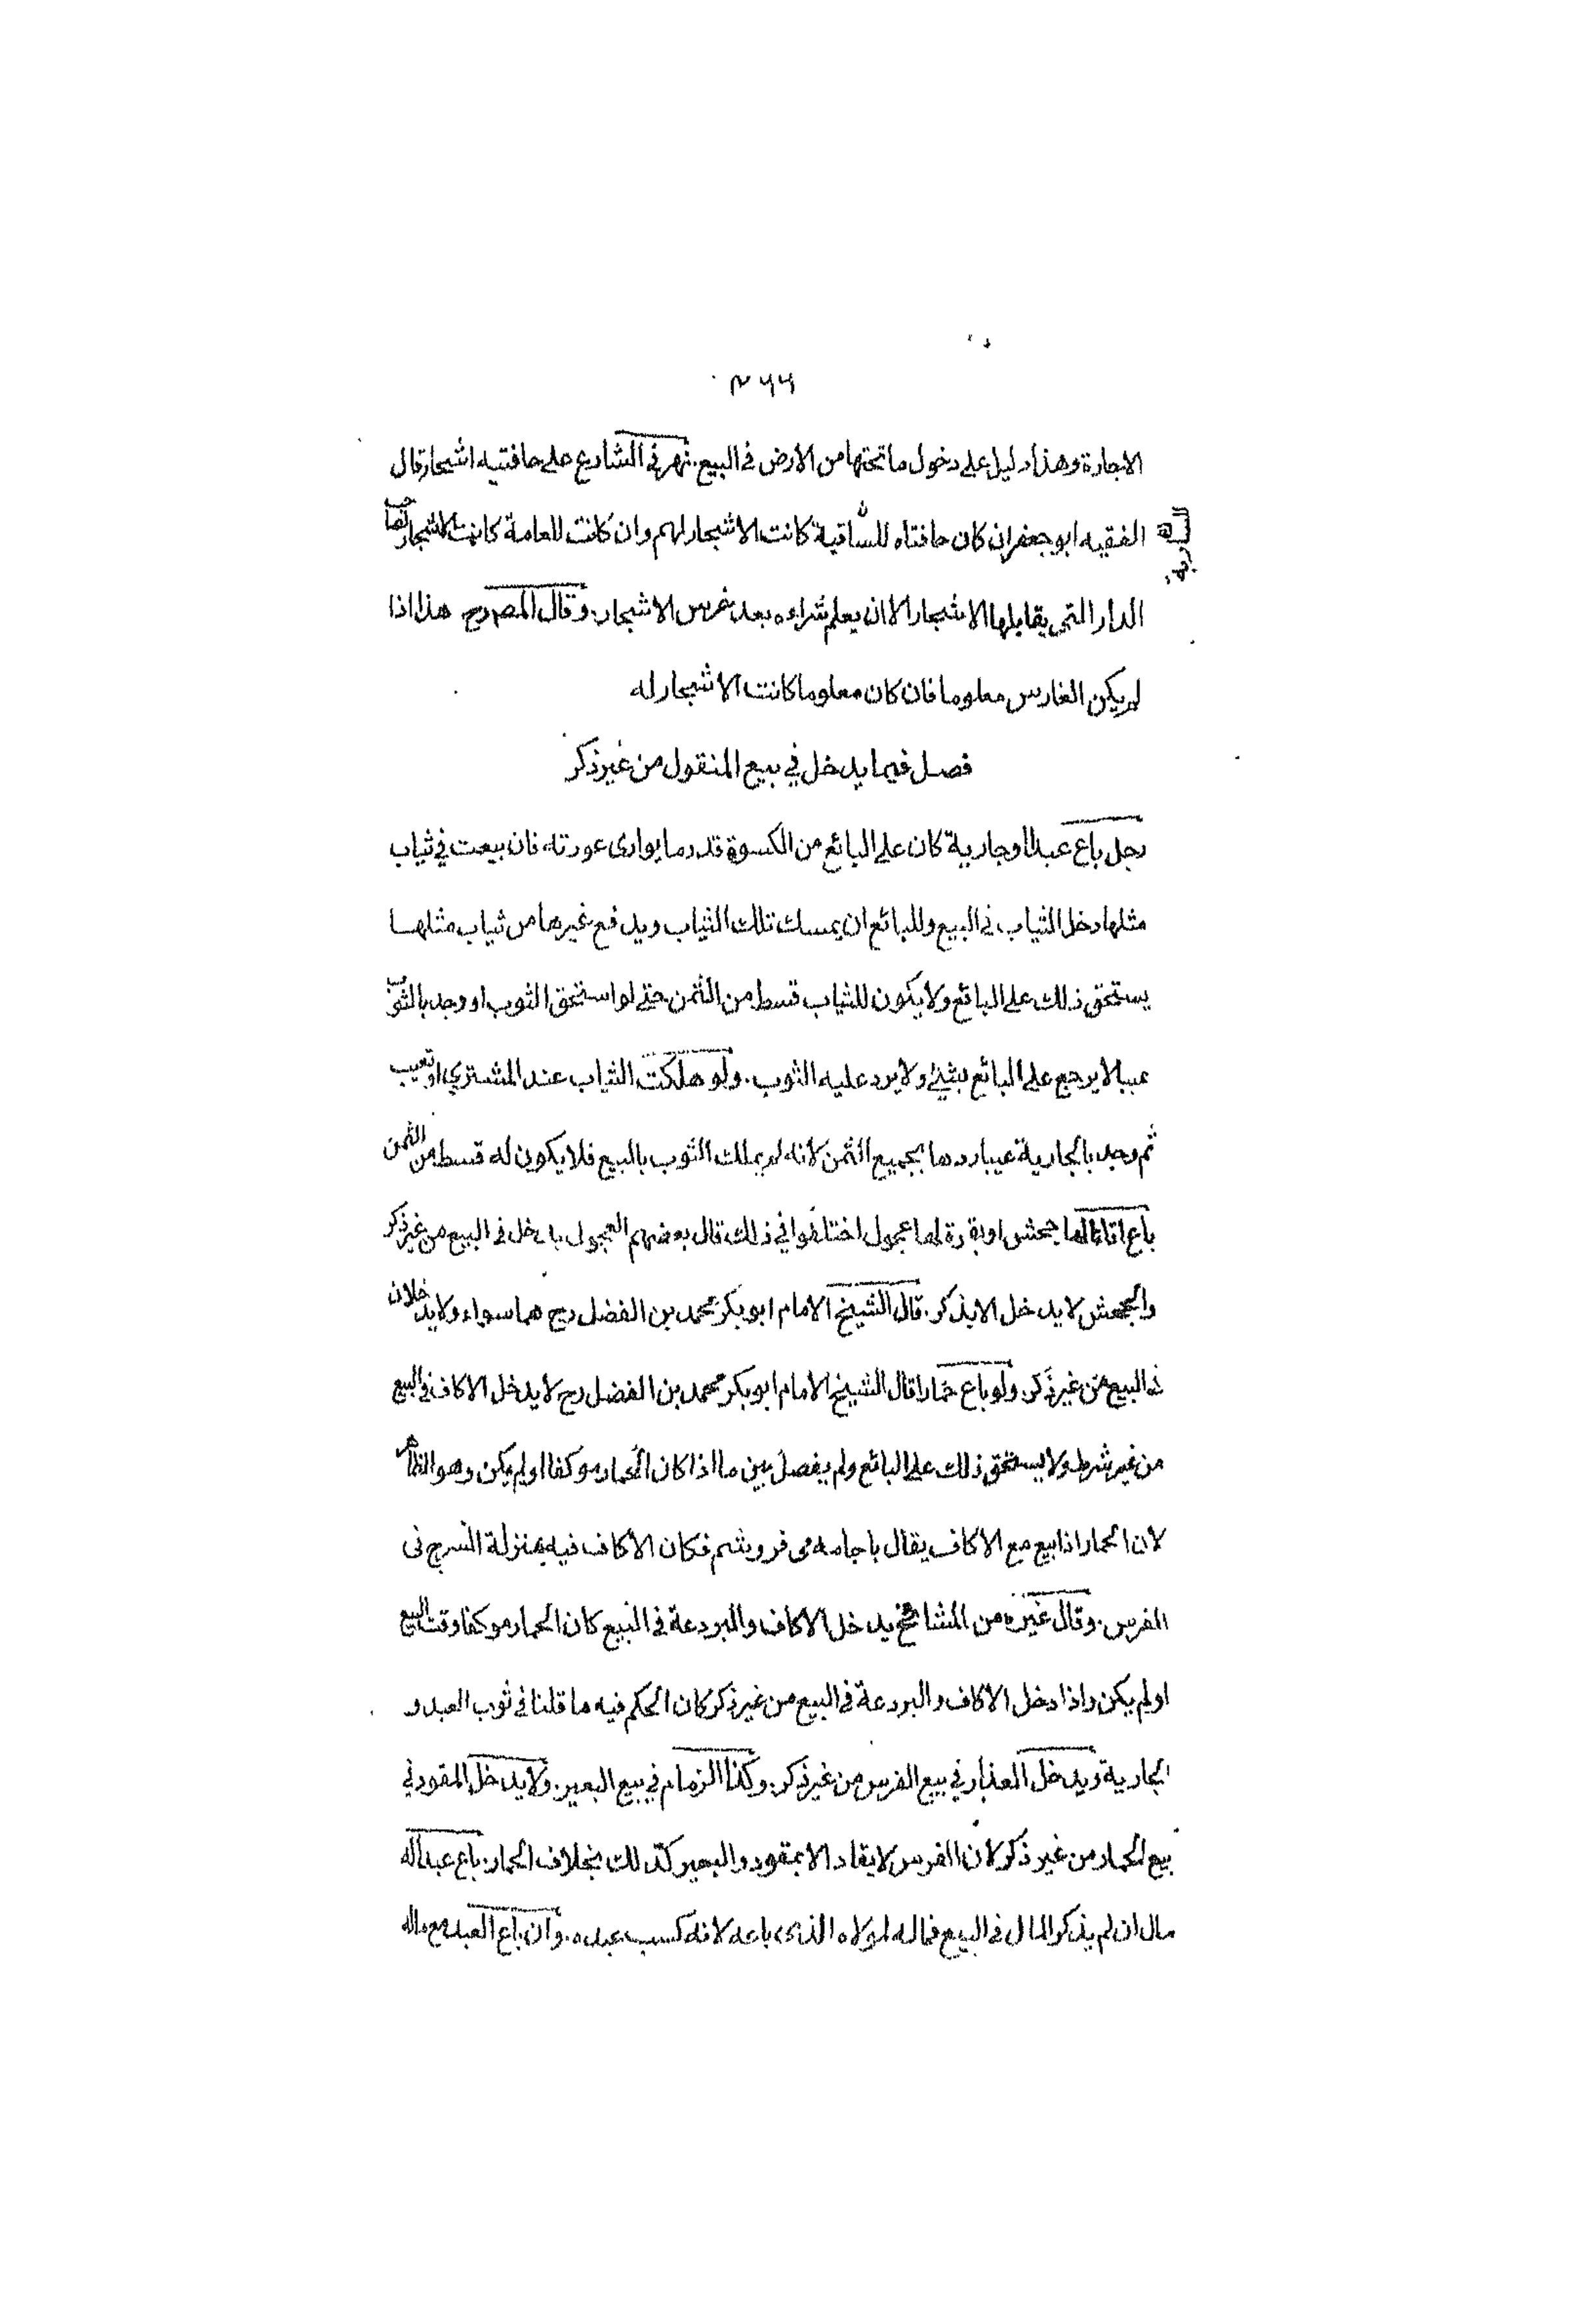 ٣٦٦
الاجارة وهذا دليل على دخول ما تحتها من الارض فى البيع. نهر فى الشارع على حافتيه اشجار قال
الفقيه ابو جعفر ان كان حافتاه للساقية كانت الاشجار لهم وان كانت للعامة كانت الاشجار لصاحب
الدار التى يقابلها الاشجار الا ان يعلم شراءه بعد غرس الاشجار. وقال المصـ رح هذا اذا
لم يكن الغارس معلوما فان كان معلوما كانت الاشجار له
فصل فيما يدخل في بيع المنقول من غير ذكر
رجل باع عبدا او جارية كان على البائع من الكسوة قدر ما يوارى عورته فان بيعت في ثياب
مثلها دخل الثياب فى البيع وللبائع ان يمسك تلك الثياب ويدفع غيرها من ثياب مثلها
يستحق ذلك على البائع ولا يكون للثياب قسط من الثمن حتى لو استحق الثوب او وجد بالثوب
عيبا لا يرجع على البائع بشئ ولا يرد عليه الثوب. ولو هلكت الثياب عند المشتري او تعيب
ثم وجد بالجارية عيبا ردها بجميع الثمن لانه لم يملك الثوب بالبيع فلا يكون له قسط من الثمن
باع اتانا لها جحش او بقرة لها عجول اختلفوا في ذلك قال بعضهم العجول يدخل فى البيع من غير ذكر
والجحش لا يدخل الا بذكر. قال الشيخ الامام ابو بكر محمد بن الفضل رح هما سواء ولا يدخلان
فى البيع من غير ذكر. ولو باع حمارا قال الشيخ الامام ابو بكر محمد بن الفضل رح لا يدخل الاكاف فى البيع
من غير شرط ولا يستحق ذلك على البائع ولم يفصل بين ما اذا كان الحمار موكفا او لم يكن وهو الظاهر
لان الحمار اذا بيع مع الاكاف يقال باجامه مى فروشم فكان الاكاف فيه بمنزلة السرج فى
الفرس. وقال غيره من المشائخ يدخل الاكاف والبردعة فى البيع كان الحمار موكفا وقت البيع
او لم يكن واذا دخل الاكاف والبردعة فى البيع من غير ذكر كان الحكم فيه ما قلنا فى ثوب العبد و
الجارية ويدخل العذار في بيع الفرس من غير ذكر. وكذا الزمام في بيع البعير. ولا يدخل المقود في
بيع الحمار من غير ذكر لان الفرس لا يقاد الا بمقود والبعير كذلك بخلاف الحمار. باع عبدا له
مال ان لم يذكر المال فى البيع فماله لمولاه الذى باعه لانه كسب عبده. وان باع العبد مع ماله